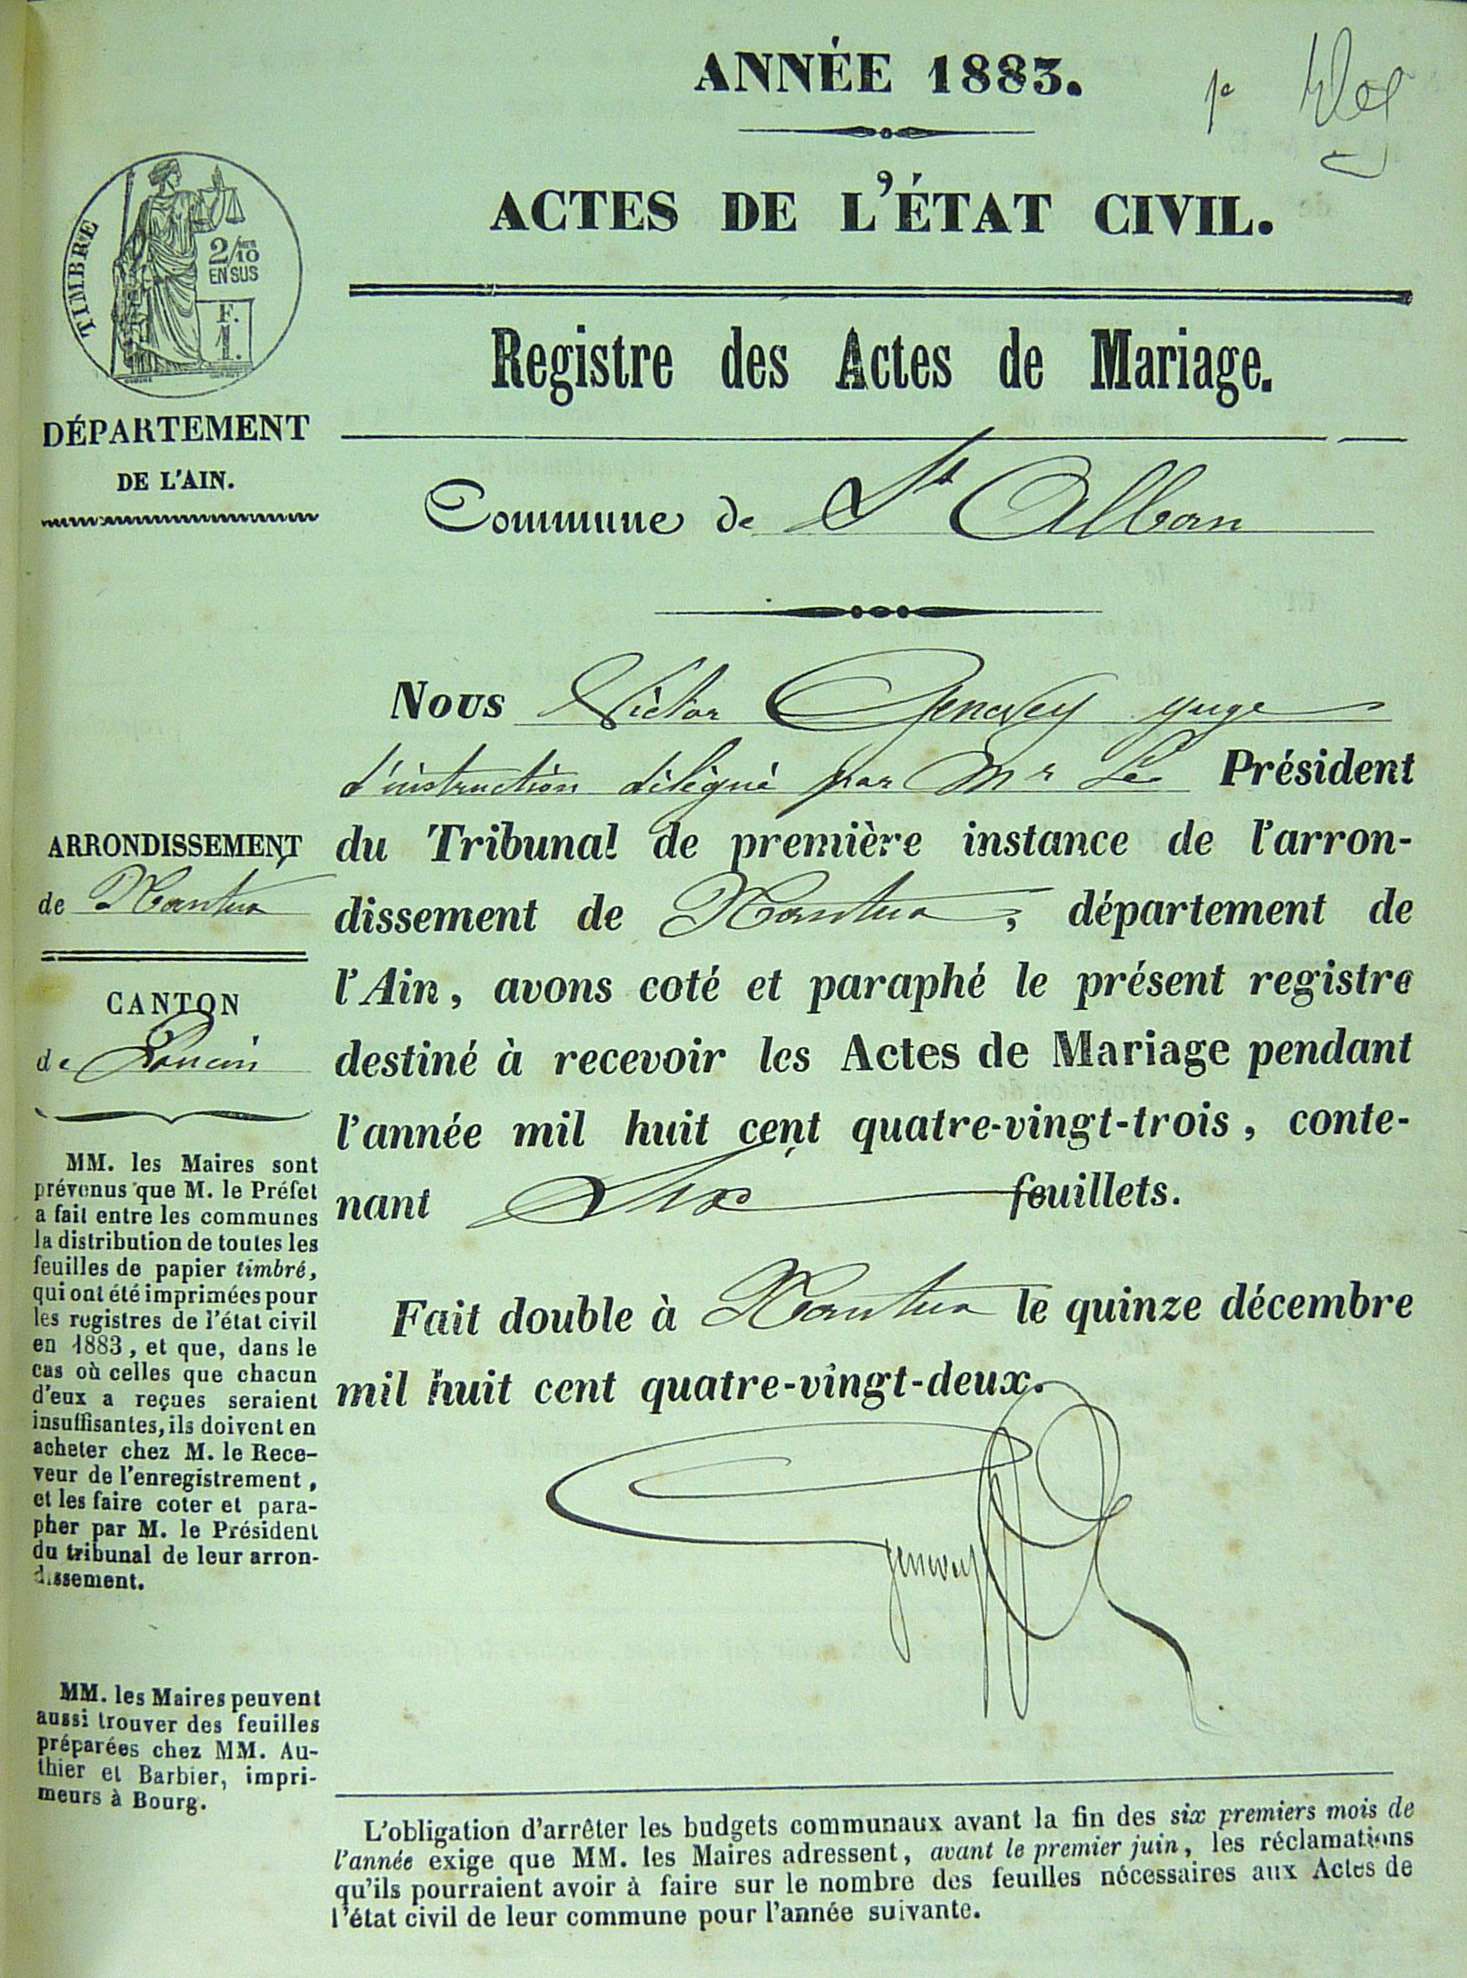 ANNÉE 1883.
1e
ACTES DE L'ÉTAT CIVIL.
TIMBRE
2/10
EN SUS
F.
1.
Registre des Actes de Mariage.
DÉPARTEMENT
DE L'AIN.
Commune de St Alban
Nous Victor Genevey juge
d'instruction délégué par Mr Le Président
du Tribunal de première instance de l'arron-
dissement de Nantua, département de
l'Ain, avons coté et paraphé le présent registre
destiné à recevoir les Actes de Mariage pendant
l'année mil huit cent quatre-vingt-trois, conte-
nant Six feuillets.
Fait double à Nantua le quinze décembre
mil huit cent quatre-vingt-deux.
Genevey
ARRONDISSEMENT
de Nantua
CANTON
de Poncin
MM. les Maires sont
prévenus que M. le Préfet
a fait entre les communes
la distribution de toutes les
feuilles de papier timbré,
qui ont été imprimées pour
les registres de l'état civil
en 1883, et que, dans le
cas où celles que chacun
d'eux a reçues seraient
insuffisantes, ils doivent en
acheter chez M. le Rece-
veur de l'enregistrement,
et les faire coter et para-
pher par M. le Président
du tribunal de leur arron-
dissement.
MM. les Maires peuvent
aussi trouver des feuilles
préparées chez MM. Au-
thier et Barbier, impri-
meurs à Bourg.
L'obligation d'arrêter les budgets communaux avant la fin des six premiers mois de
l'année exige que MM. les Maires adressent, avant le premier juin, les réclamations
qu'ils pourraient avoir à faire sur le nombre des feuilles nécessaires aux Actes de
l'état civil de leur commune pour l'année suivante.